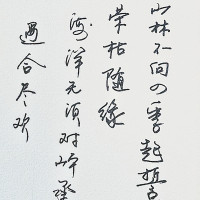 山林不向四季起誓
荣枯随缘
海洋无须对岸承
遇合尽欢